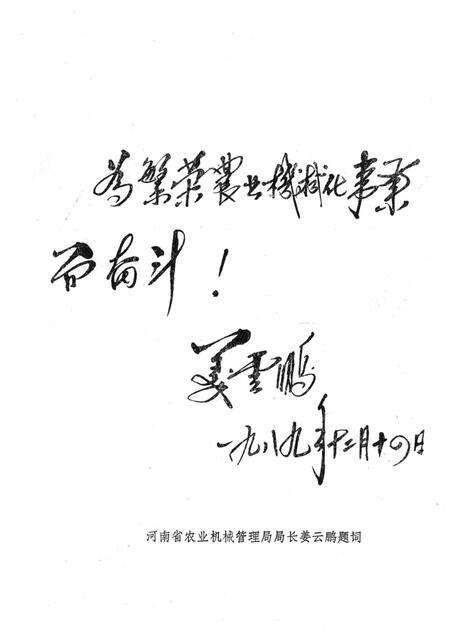 为繁荣農业機械化事业
而奋斗！
姜雲鹏
一九八九年十二月十四日
河南省农业机械管理局局长姜云鹏题词